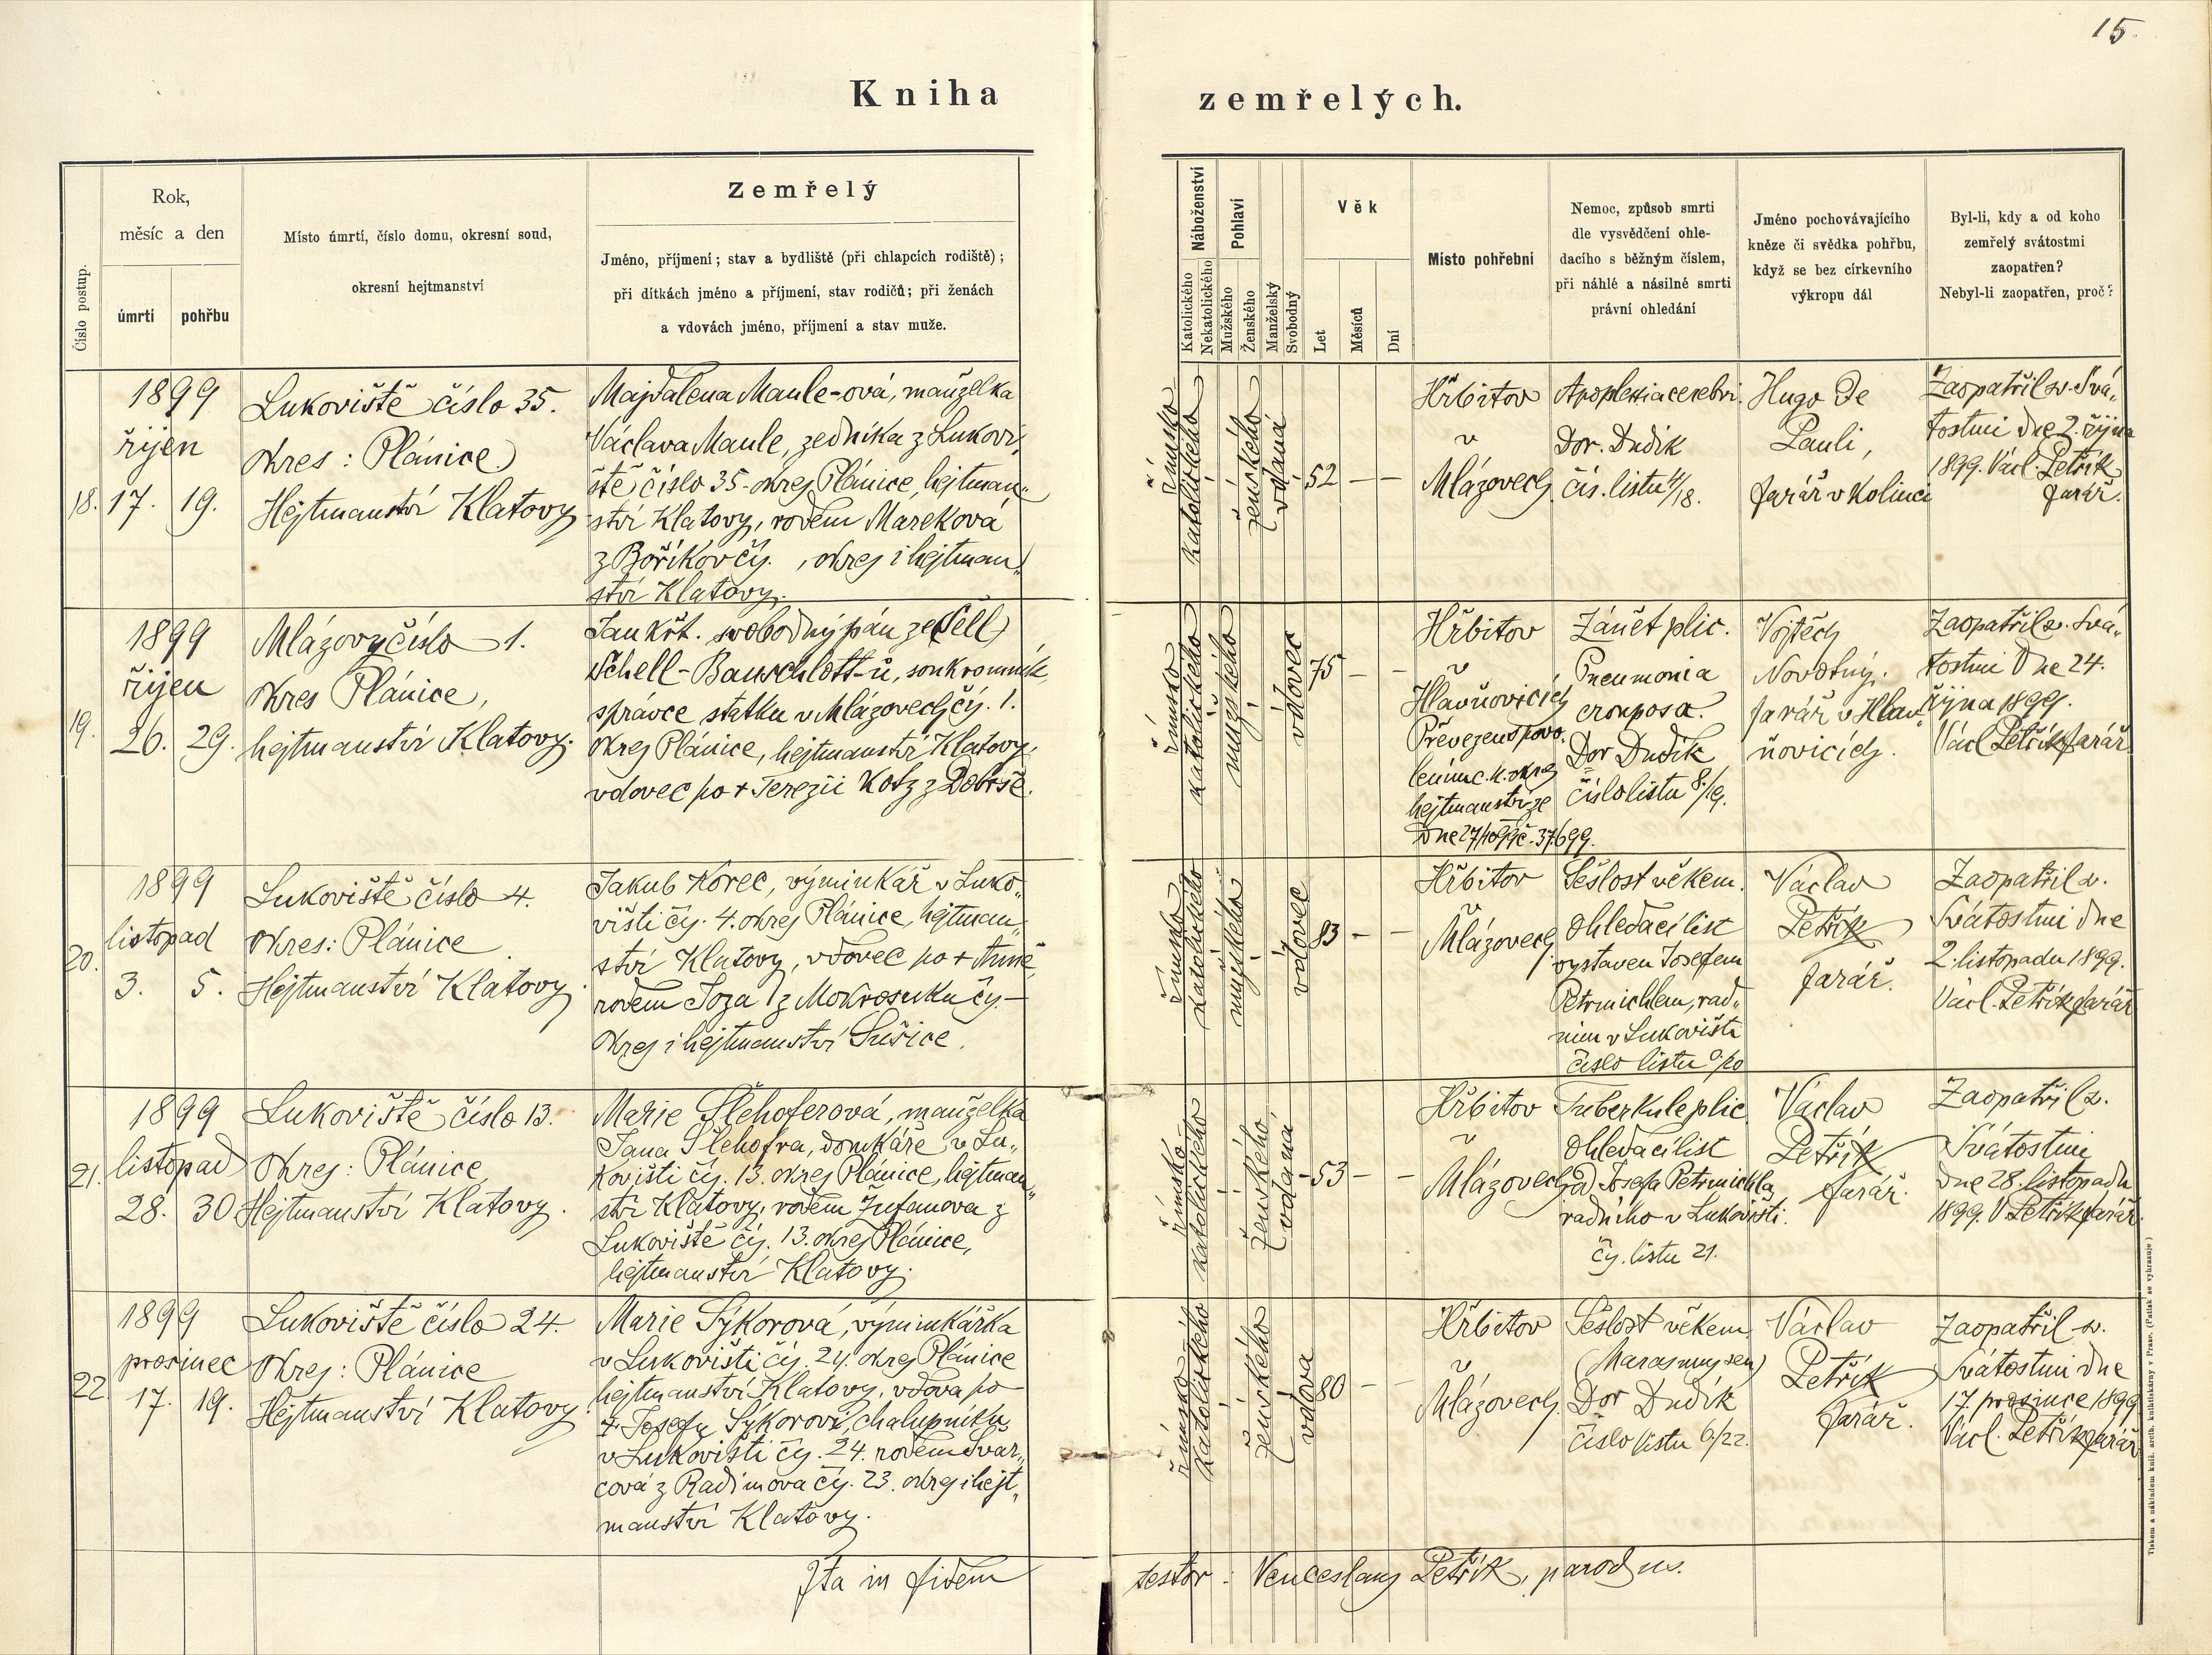 15.
Kniha zemřelých.
Číslo postup.
Rok,
měsíc a den
úmrtí
pohřbu
Místo úmrtí, číslo domu, okresní soud,
okresní hejtmanství
Zemřelý
Jméno, příjmení; stav a bydliště (při chlapcích rodiště);
při dítkách jméno a příjmení, stav rodičů; při ženách
a vdovách jméno, příjmení a stav muže.
Náboženství
Katolického
Nekatolického
Pohlaví
Mužského
Ženského
Manželský
Svobodný
Věk
Let
Měsíců
Dní
Místo pohřební
Nemoc, způsob smrti
dle vysvědčení ohle-
dacího s běžným číslem,
při náhlé a násilné smrti
právní ohledání
Jméno pochovávajícího
kněze či svědka pohřbu,
když se bez církevního
výkropu dál
Byl-li, kdy a od koho
zemřelý svátostmi
zaopatřen?
Nebyl-li zaopatřen, proč?
18.
1899
říjen
17. 19.
Lukoviště číslo 35.
Okres: Plánice
Hejtmanství Klatovy
Majdalena Maule-ová, manželka
Václava Maule, zedníka z Lukovi„
ště číslo 35. okres Plánice, hejtman„
ství Klatovy, rodem Mareková
z Boříkov čís. , okres i hejtman„
ství Klatovy.
římsko
katolického
ženského
vdaná
52 — —
Hřbitov
v
Mlázovech
Apoplexia cerebri.
Dor. Dudík
čís. listu 4/18.
Hugo De
Pauli,
farář v Kolinci
Zaopatřil sv. Svá„
tostmi dne 2. října
1899. Václ. Petřík
farář.
19.
1899
říjen
26. 29.
Mlázovy číslo 1.
Okres Plánice,
hejtmanství Klatovy.
Jan Křt. svobodný pán ze (Šell)
Schell-Bauschlott-ů, soukromník,
správce statku v Mlázovech čís. 1.
Okres Plánice, hejtmanství Klatovy,
vdovec po + Terezii Kotz z Dobrše.
římsko
katolického
mužského
vdovec
75 — —
Hřbitov
v
Hlavňovicích
Převezen s povo„
lením c. k. okres
hejtmanství ze
dne 27/10 99 č. 37699.
Zánět plic.
Pneumonia
crouposa.
Dor Dudík
číslo listu 8./19.
Vojtěch
Novotný.
farář v Hlav„
ňovicích.
Zaopatřil sv. Svá„
tostmi dne 24.
října 1899.
Václ Petřík farář
20.
1899
listopad
3. 5.
Lukoviště číslo 4.
Okres: Plánice
Hejtmanství Klatovy.
Jakub Korec, výminkář v Luko„
višti čís. 4. okres Plánice, hejtman„
ství Klatovy, vdovec po + Anně
rodem Joza z Mokrosuku čís. —
Okres i hejtmanství Sušice.
římsko
katolického
mužského
vdovec
83 — —
Hřbitov
v
Mlázovech
Sešlost věkem.
Ohledací list
vystaven Josefem
Petrmichlem, rad„
ním v Lukovišti
číslo listu 0/20
Václav
Petřík
farář.
Zaopatřil sv.
Svátostmi dne
2. listopadu 1899.
Václ. Petřík farář
21.
1899
listopad
28. 30
Lukoviště číslo 13.
Okres: Plánice
Hejtmanství Klatovy.
Marie Šlehoferová, manželka
Jana Šlehofra, domkáře v Lu„
kovišti čís. 13. okres Plánice, hejtman„
ství Klatovy, rodem Žufanova z
Lukoviště čís. 13. okres Plánice,
hejtmanství Klatovy.
římsko
katolického
ženského
vdaná
53 — —
Hřbitov
v
Mlázovech
Tuberkule plic
Ohledací list
od Josefa Petrmichla
radního v Lukovišti.
čís. listu 21.
Václav
Petřík
farář.
Zaopatřil sv.
Svátostmi
dne 28. listopadu
1899. V Petřík farář.
22
1899
prosinec
17. 19.
Lukoviště číslo 24.
Okres: Plánice
Hejtmanství Klatovy.
Marie Sýkorová, výminkářka
v Lukovišti čís. 24. okres Plánice
hejtmanství Klatovy, vdova po
+ Josefu Sýkorovi, chalupníku
v Lukovišti čís. 24. rodem Švar„
cová z Radinova čís. 23. okres i hejt„
manství Klatovy.
římsko
katolického
ženského
vdova
80 — —
Hřbitov
v
Mlázovech.
Sešlost věkem
(Marasmus sen)
Dor Dudík
číslo listu 6/22.
Václav
Petřík
farář.
Zaopatřil sv.
Svátostmi dne
17. prosince 1899
Václ. Petřík farář
Ita in fidem testor: Venceslaus Petřík, parochus.
Tiskem a nákladem kníž. arcib. knihtiskárny v Praze. (Patisk se vyhrazuje)